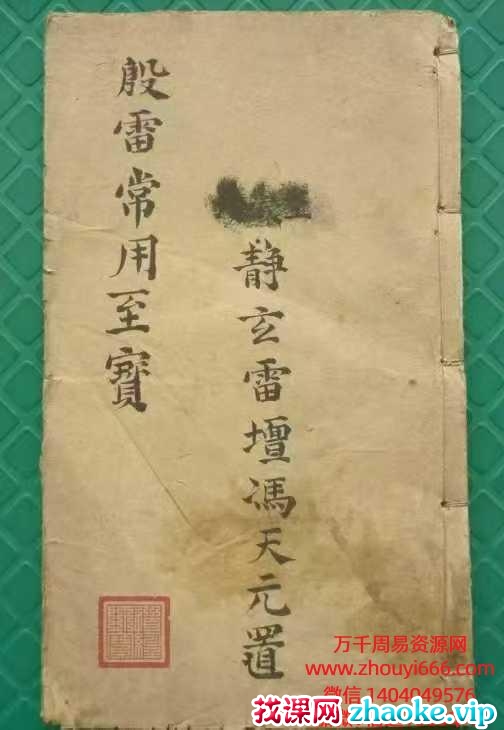 殷雷常用至寶
靜玄雷壇馮天元置
万千周易资源网
www.zhouyi666.com
微信 1404049576
找课网zhaoke.vip